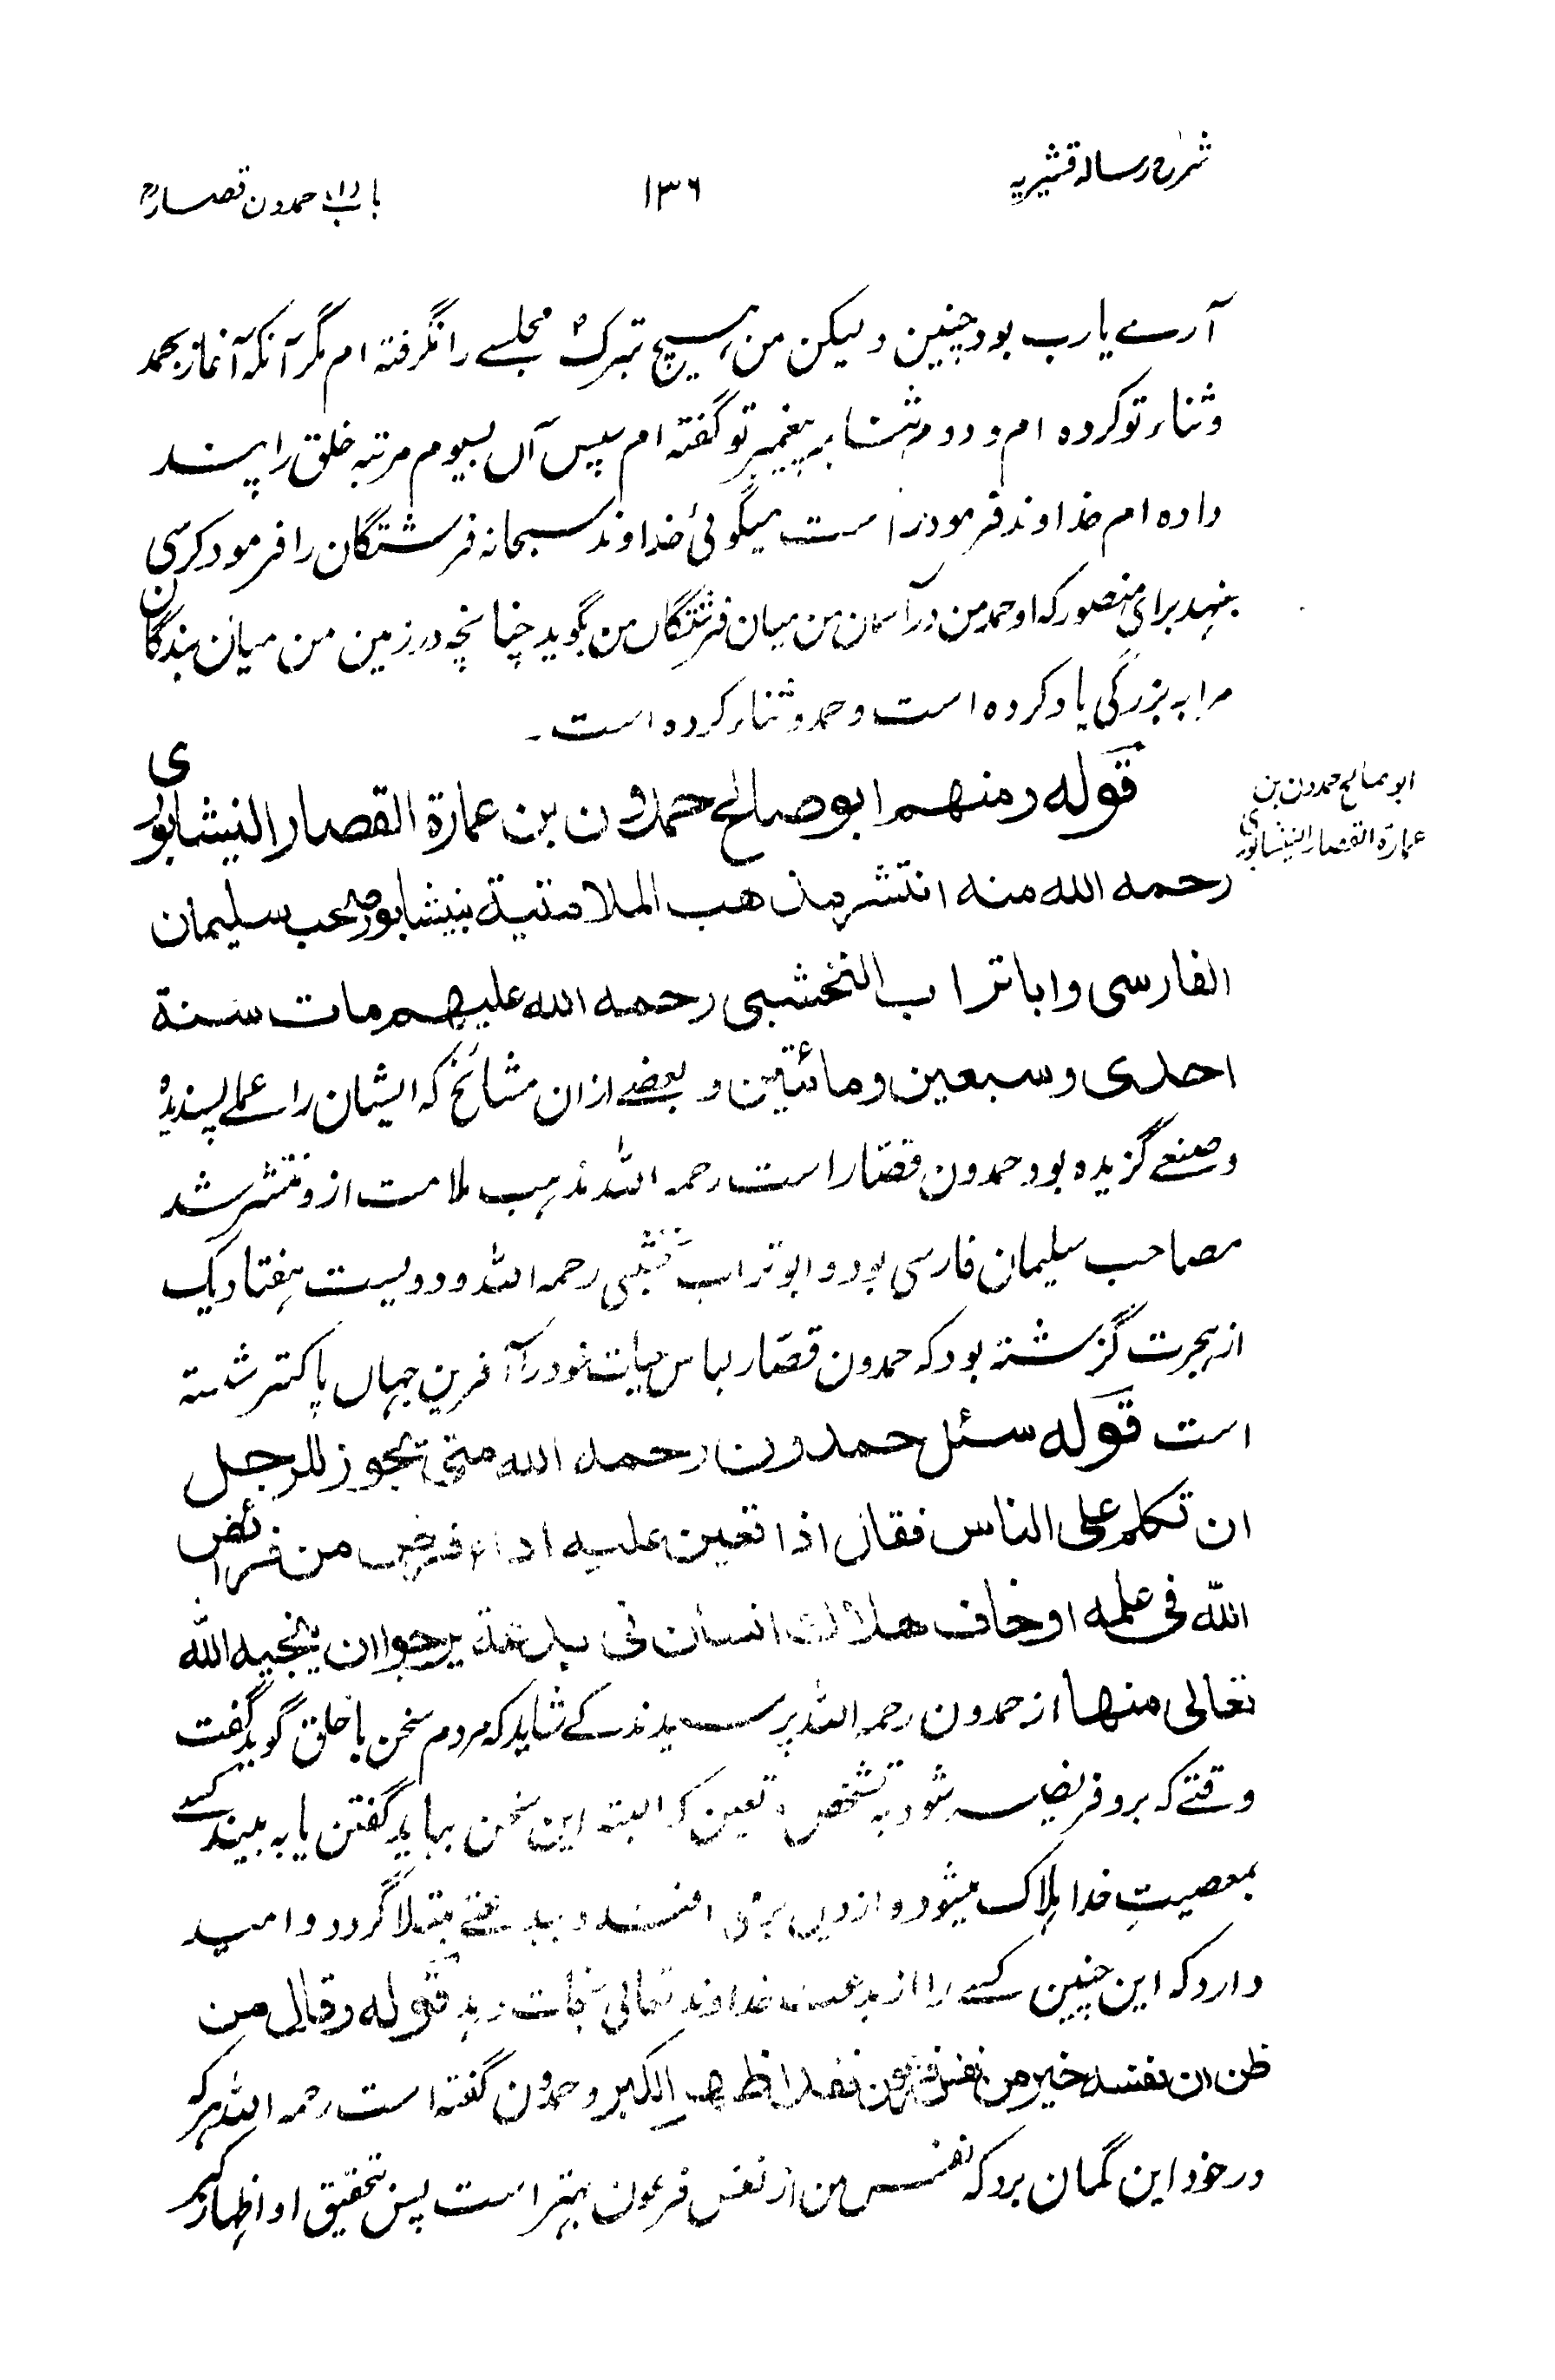 شرح رسالہ قشیریہ
۱۳۶
باب حمدون قصار
آرے یارب بود چنین ولیکن من ہیچ تبرک مجلسے را نگرفتہ ام مگر آنکہ آغاز بحمد
و ثناء تو کردہ ام و دوم ثنا بر پیغمبر تو گفتہ ام سپس آں بسیوم مرتبہ خلق را پند
دادہ ام خداوند فرمود راست میگوئی خداوند سبحانہ فرشتگان را فرمود کرسی
بنہید برای منصور کہ او حمد من در آسمان من میان فرشتگاں من بگوید چنانچہ در زمین من میان بندگان
مرا بہ بزرگی یاد کردہ است و حمد و ثناء کردہ است۔
قوله ومنهم ابو صالح حمدون بن عمارة القصار النيشابوري
ابو صالح حمدون بن
عمارة القصار النیشابوری
رحمه الله منه انتشر مذهب الملامتية بنيشابور صحب سليمان
الفارسى وابا تراب النخشبى رحمه الله عليهم مات سنة
احدى وسبعين ومائتين و بعضے ازان مشائخ کہ ایشان را عملے پسندیدہ
و صنعے گزیدہ بود حمدون قصّار است رحمہ اللہ مذہب ملامت ازو منتشر شد
مصاحب سلیمان فارسی بود و ابو تراب نخشبی رحمہ اللہ و دویست ہفتاد یک
از ہجرت گزشتہ بود کہ حمدون قصّار لباس حیات خود را آفرین جہاں پاکتر شستہ
است قوله سئل حمدون رحمه الله متى يجوز للرجل
ان تكلم على الناس فقال اذا تعين عليه اداء فرض من فرائض
الله فى علمه او خاف هلاك انسان فى بدعة يرجوا ان ينجيه الله
تعالى منها از حمدون رحمہ اللہ پرسیدند کے شاید کہ مردم سخن با خلق گوید گفت
وقتے کہ برو فریضہ شود بہ تشخص و تعین کہ البتہ این سخن بباید گفتن یا بہ بیند کسے
بمعصیتِ خدا ہلاک میشود و از دین برمی افتد و ببدعتے مبتلا گردد و امید
دارد کہ این چنین کسے را از بدعت خداوند تعالی نجات دہد قوله وقال من
ظن ان نفسه خير من نفس فرعون فقد اظهر الكبر و حمدون گفتہ است رحمہ اللہ ہر کہ
در خود این گمان برد کہ نفس من از نفس فرعون بہتر است پس بتحقیق او اظہار کبر